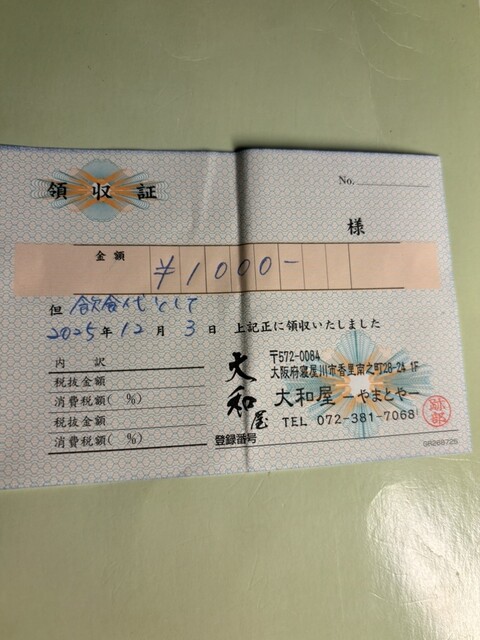 領収証
No.
様
金額 ¥1000-
但 飲食代として
2025年12月3日 上記正に領収いたしました
内訳
税抜金額
消費税額( %)
税抜金額
消費税額( %)
大和屋
〒572-0084
大阪府寝屋川市香里南之町28-24 1F
大和屋 ーやまとやー
TEL 072-381-7068
登録番号